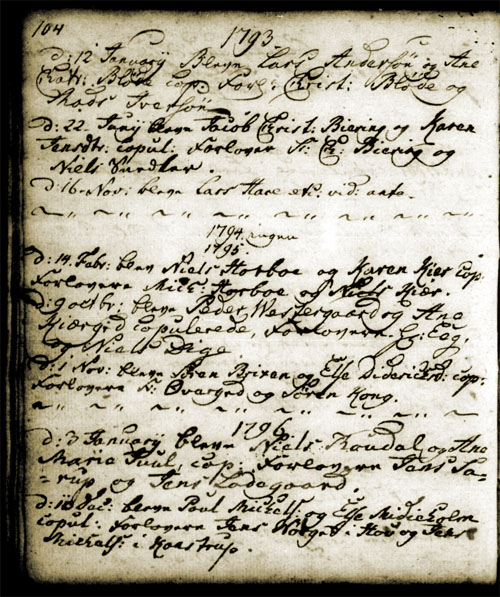 104
1793
d: 12 Januarÿ Blevn Lars Andersön og Ane
Cathr: Bløde cop: Forl: Christ: Bløde og
Mads Iversön
d: 22. Junÿ blevn Jacob Christ: Biering og Karen
Jensdtr: copul: Forlovere S: Chr: Biering og
Niels
d: 16 Nov: blevn Lars Hare etc: vid: ante.
1794 ingen
1795
d: 14. Febr: blev Niels Horboe og Karen Kier cop
Forlovere Mich: Horboe og Niels Kiær.
d: 9 octbr: blevn Peder Westergaard og Ane
Kiærgrd copulerede, Forlovere
og Niels Dige
d: 1 Nov: blevn Sören Brixen og Else Diderichsd: cop:
Forlovere S: Overgrd og Sören Kong.
1796
d: 3 Januarÿ blevn Niels Roudal og Ane
Maria Juul cop: Forlovere Jens Ta-
-rup og Jens Ladegaard.
d: 18 Dec: blevn Poul Michels: og Else
copul: Forlovere Jens i Hov og Jens
Michels: i Kaastrup.